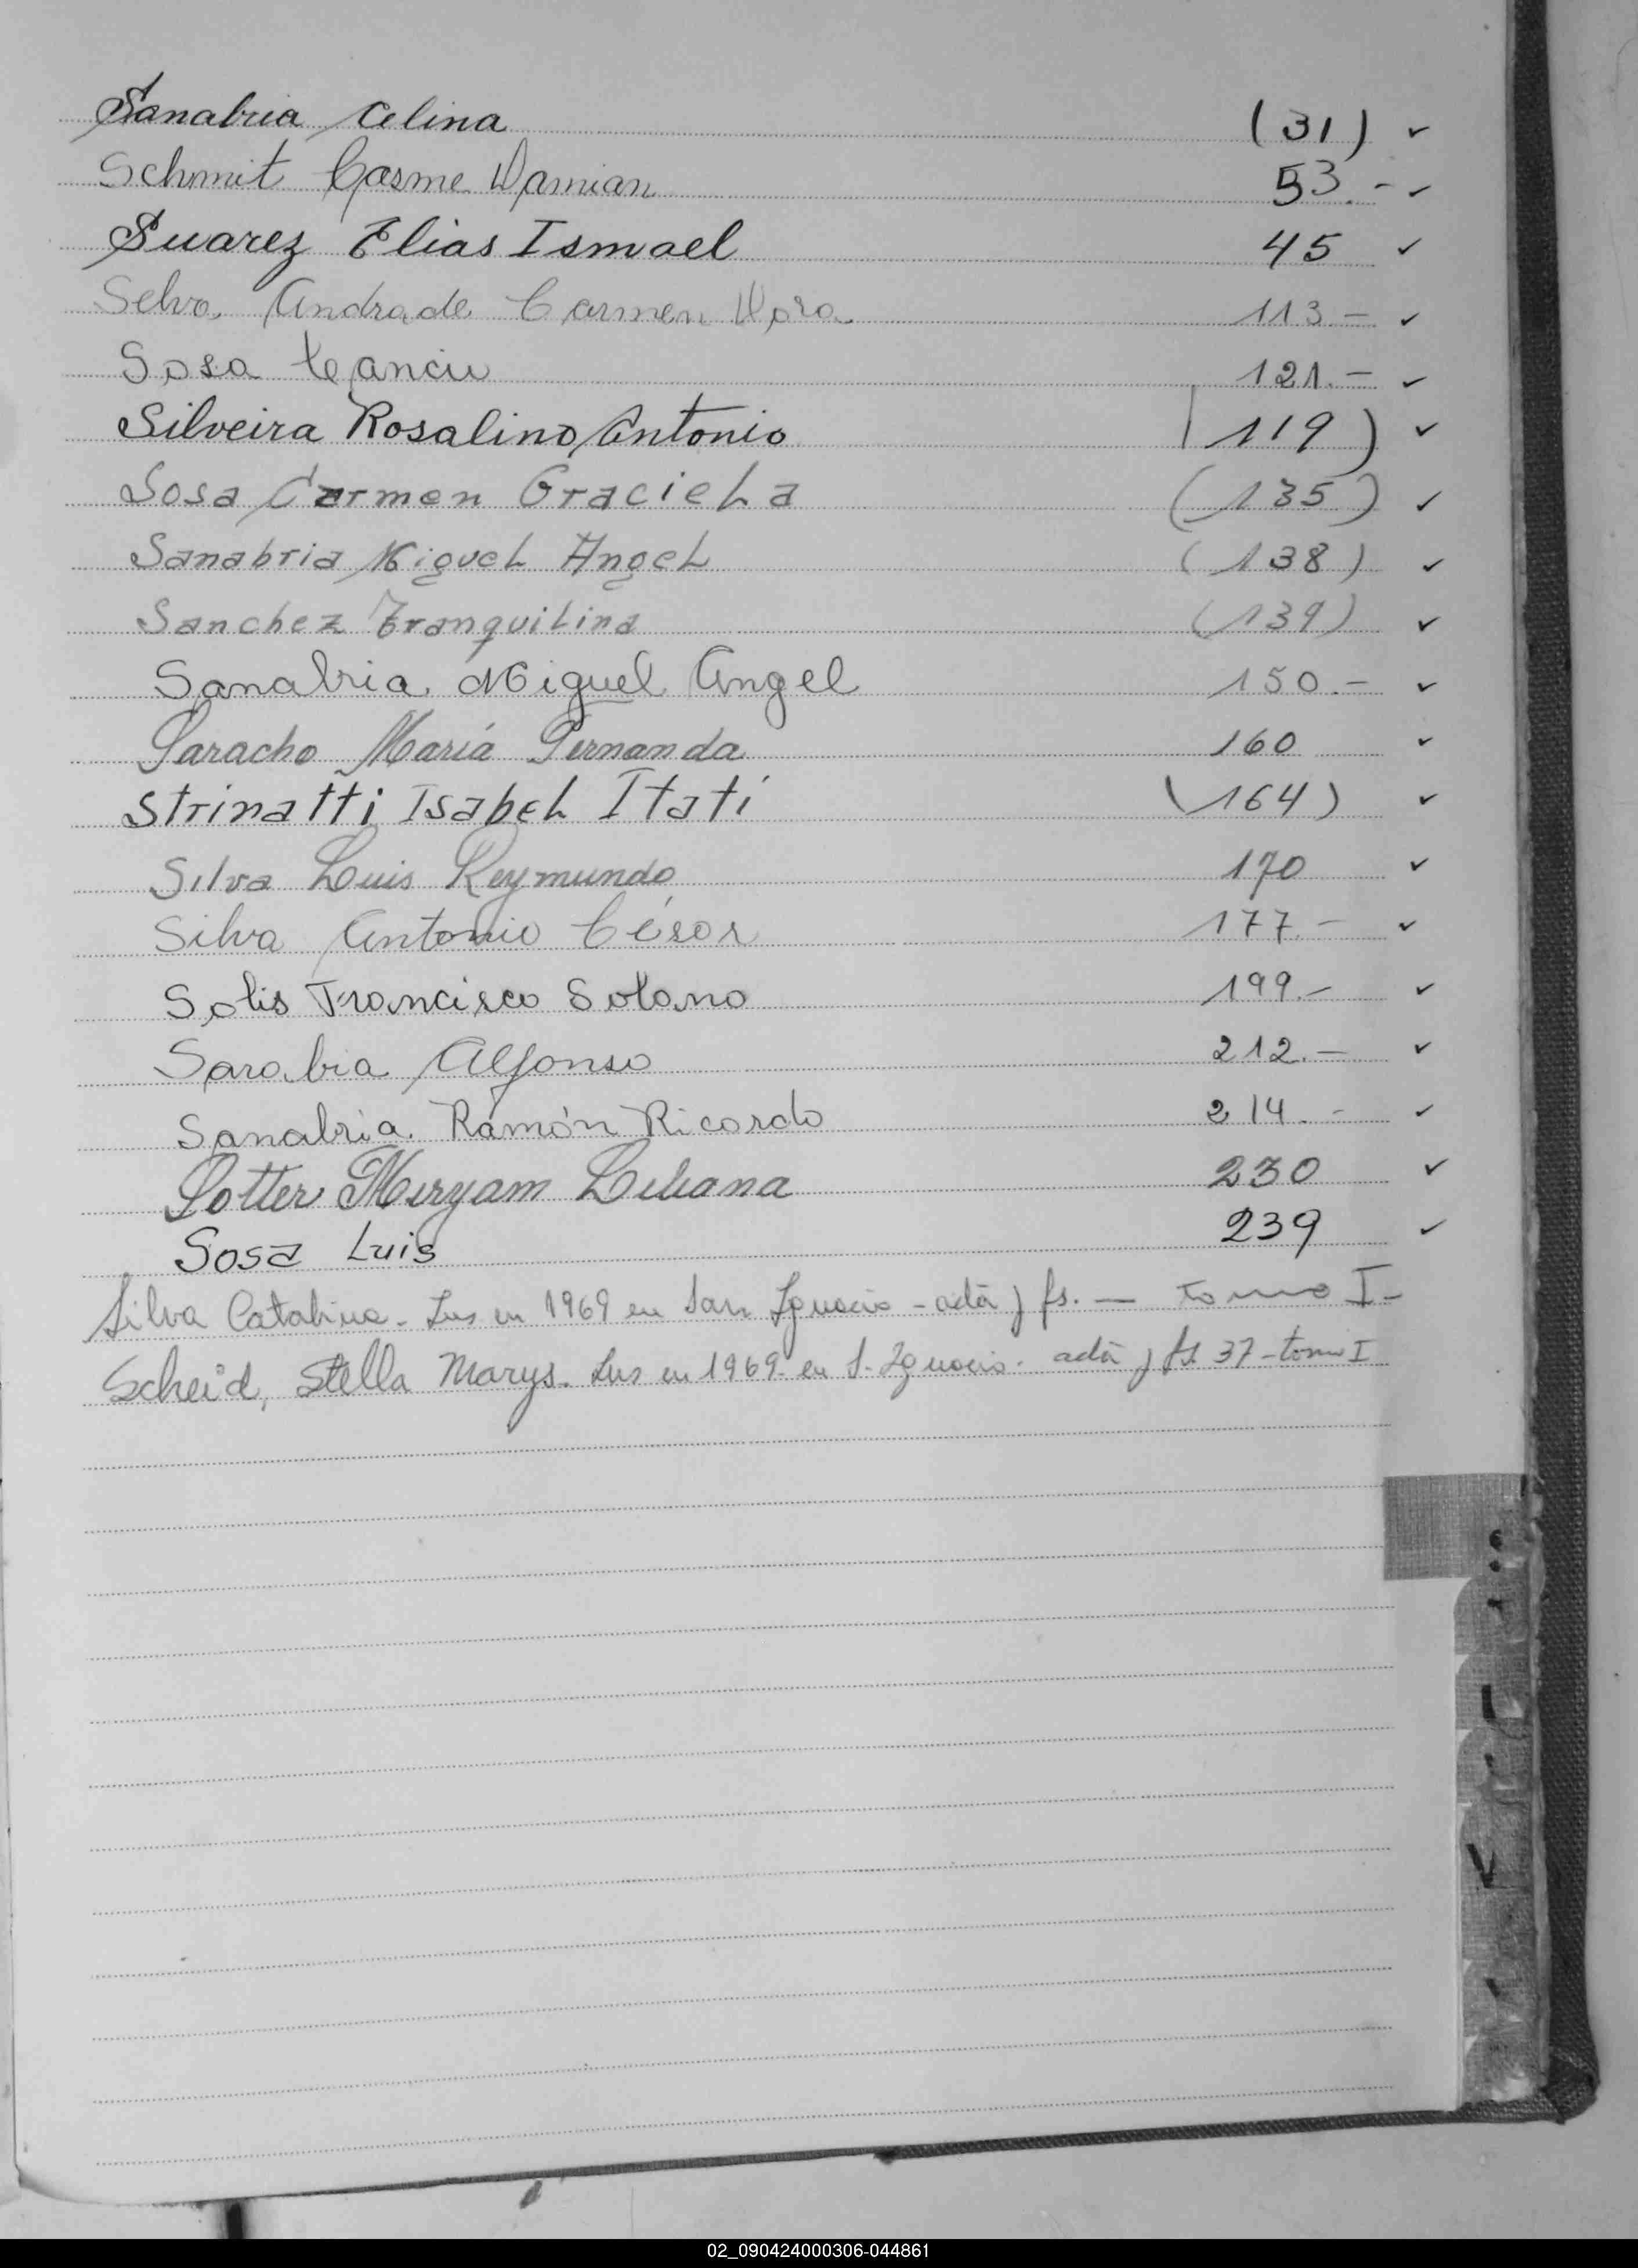 Sanabria Celina (31) ✓
Schmit Cosme Damian 53.- ✓
Suarez Elias Ismael 45 ✓
Selva Andrade Carmen Dora 113.- ✓
Sosa 121.- ✓
Silveira Rosalino Antonio (119) ✓
Sosa Carmen Graciela (135) ✓
Sanabria Miguel Angel (138) ✓
Sanchez Tranquilina (139) ✓
Sanabria Miguel Angel 150.- ✓
Saracho María Fernanda 160 ✓
Strinatti Isabel Itatí (164) ✓
Silva Luis Reymundo 170 ✓
Silva Antonio César 177.- ✓
Solis Francisco Solano 199.- ✓
Sarabia Alfonso 212.- ✓
Sanabria Ramón Ricardo 214.- ✓
Sotter Miryam Liliana 230 ✓
Sosa Luis 239 ✓
Silva Catalina - Ins en 1969 en San Ignacio - acta y fs. — tomo I -
Scheid, Stella Marys. Ins en 1969 - en S. Ignacio - acta y fs 37 - tomo I
02_090424000306-044861